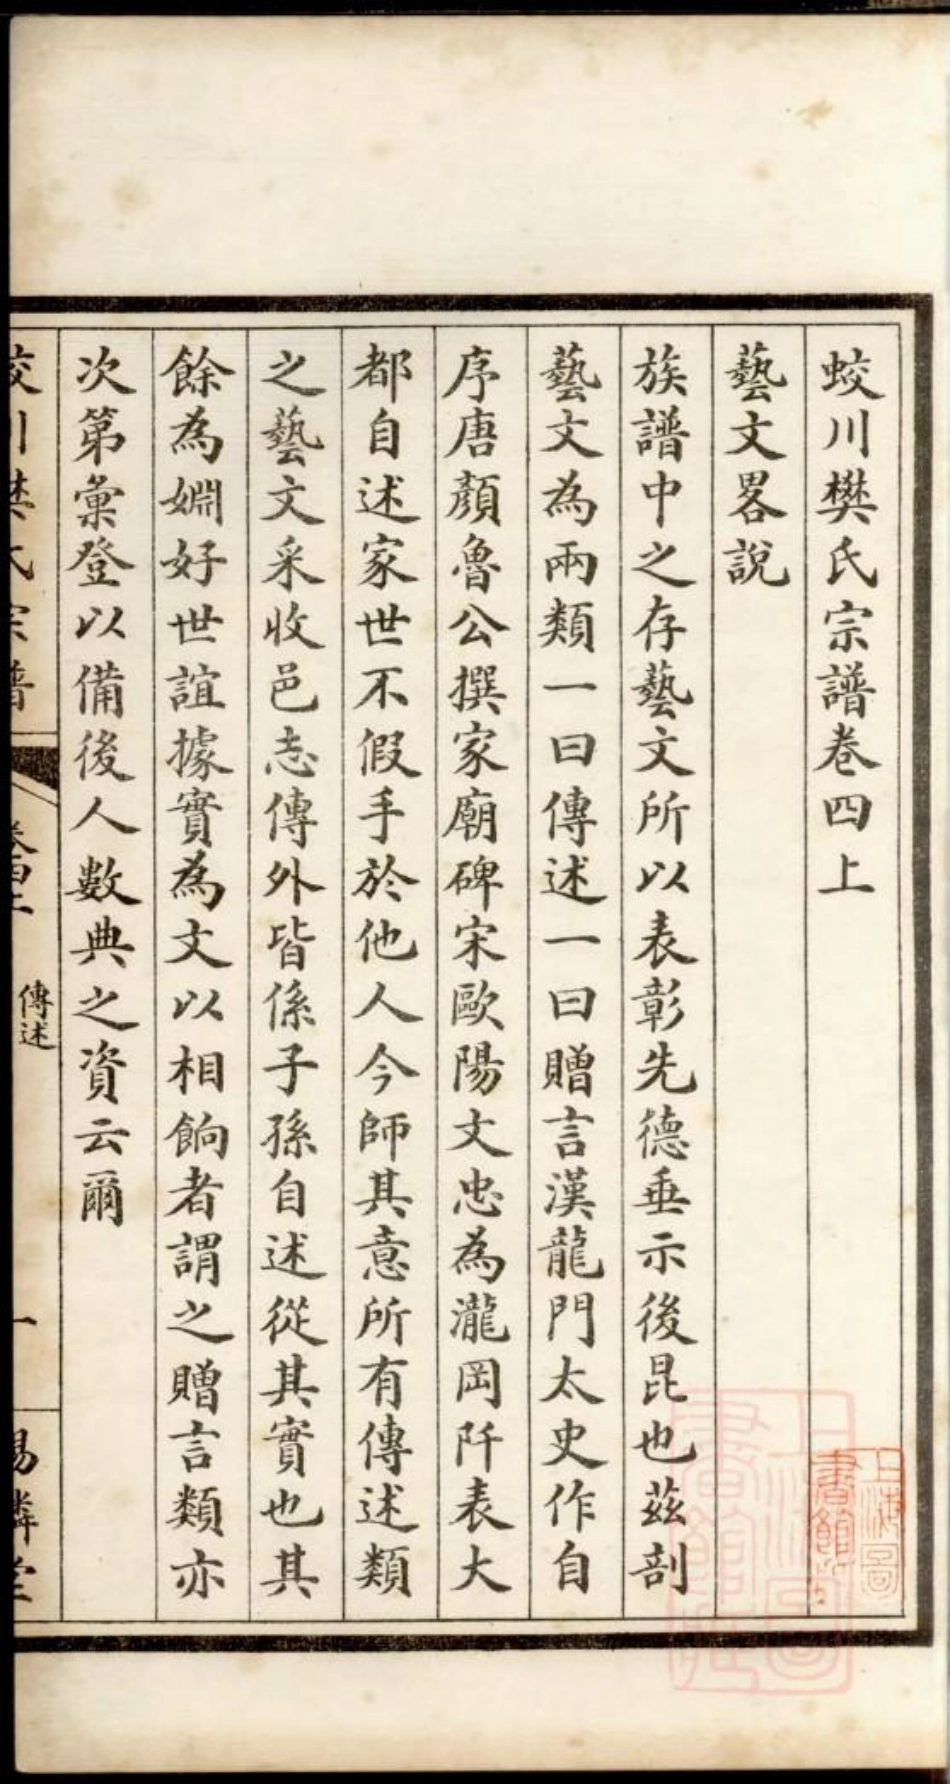 蛟川樊氏宗譜卷四上
藝文畧說
族譜中之存藝文所以表彰先德垂示後昆也茲剖
藝文為兩類一曰傳述一曰贈言漢龍門太史作自
序唐顏魯公撰家廟碑宋歐陽文忠為瀧岡阡表大
都自述家世不假手於他人今師其意所有傳述類
之藝文采收邑志傳外皆係子孫自述從其實也其
餘為婣好世誼據實為文以相餉者謂之贈言類亦
次第彙登以備後人數典之資云爾
蛟川樊氏宗譜
傳述
一
上海圖書館藏